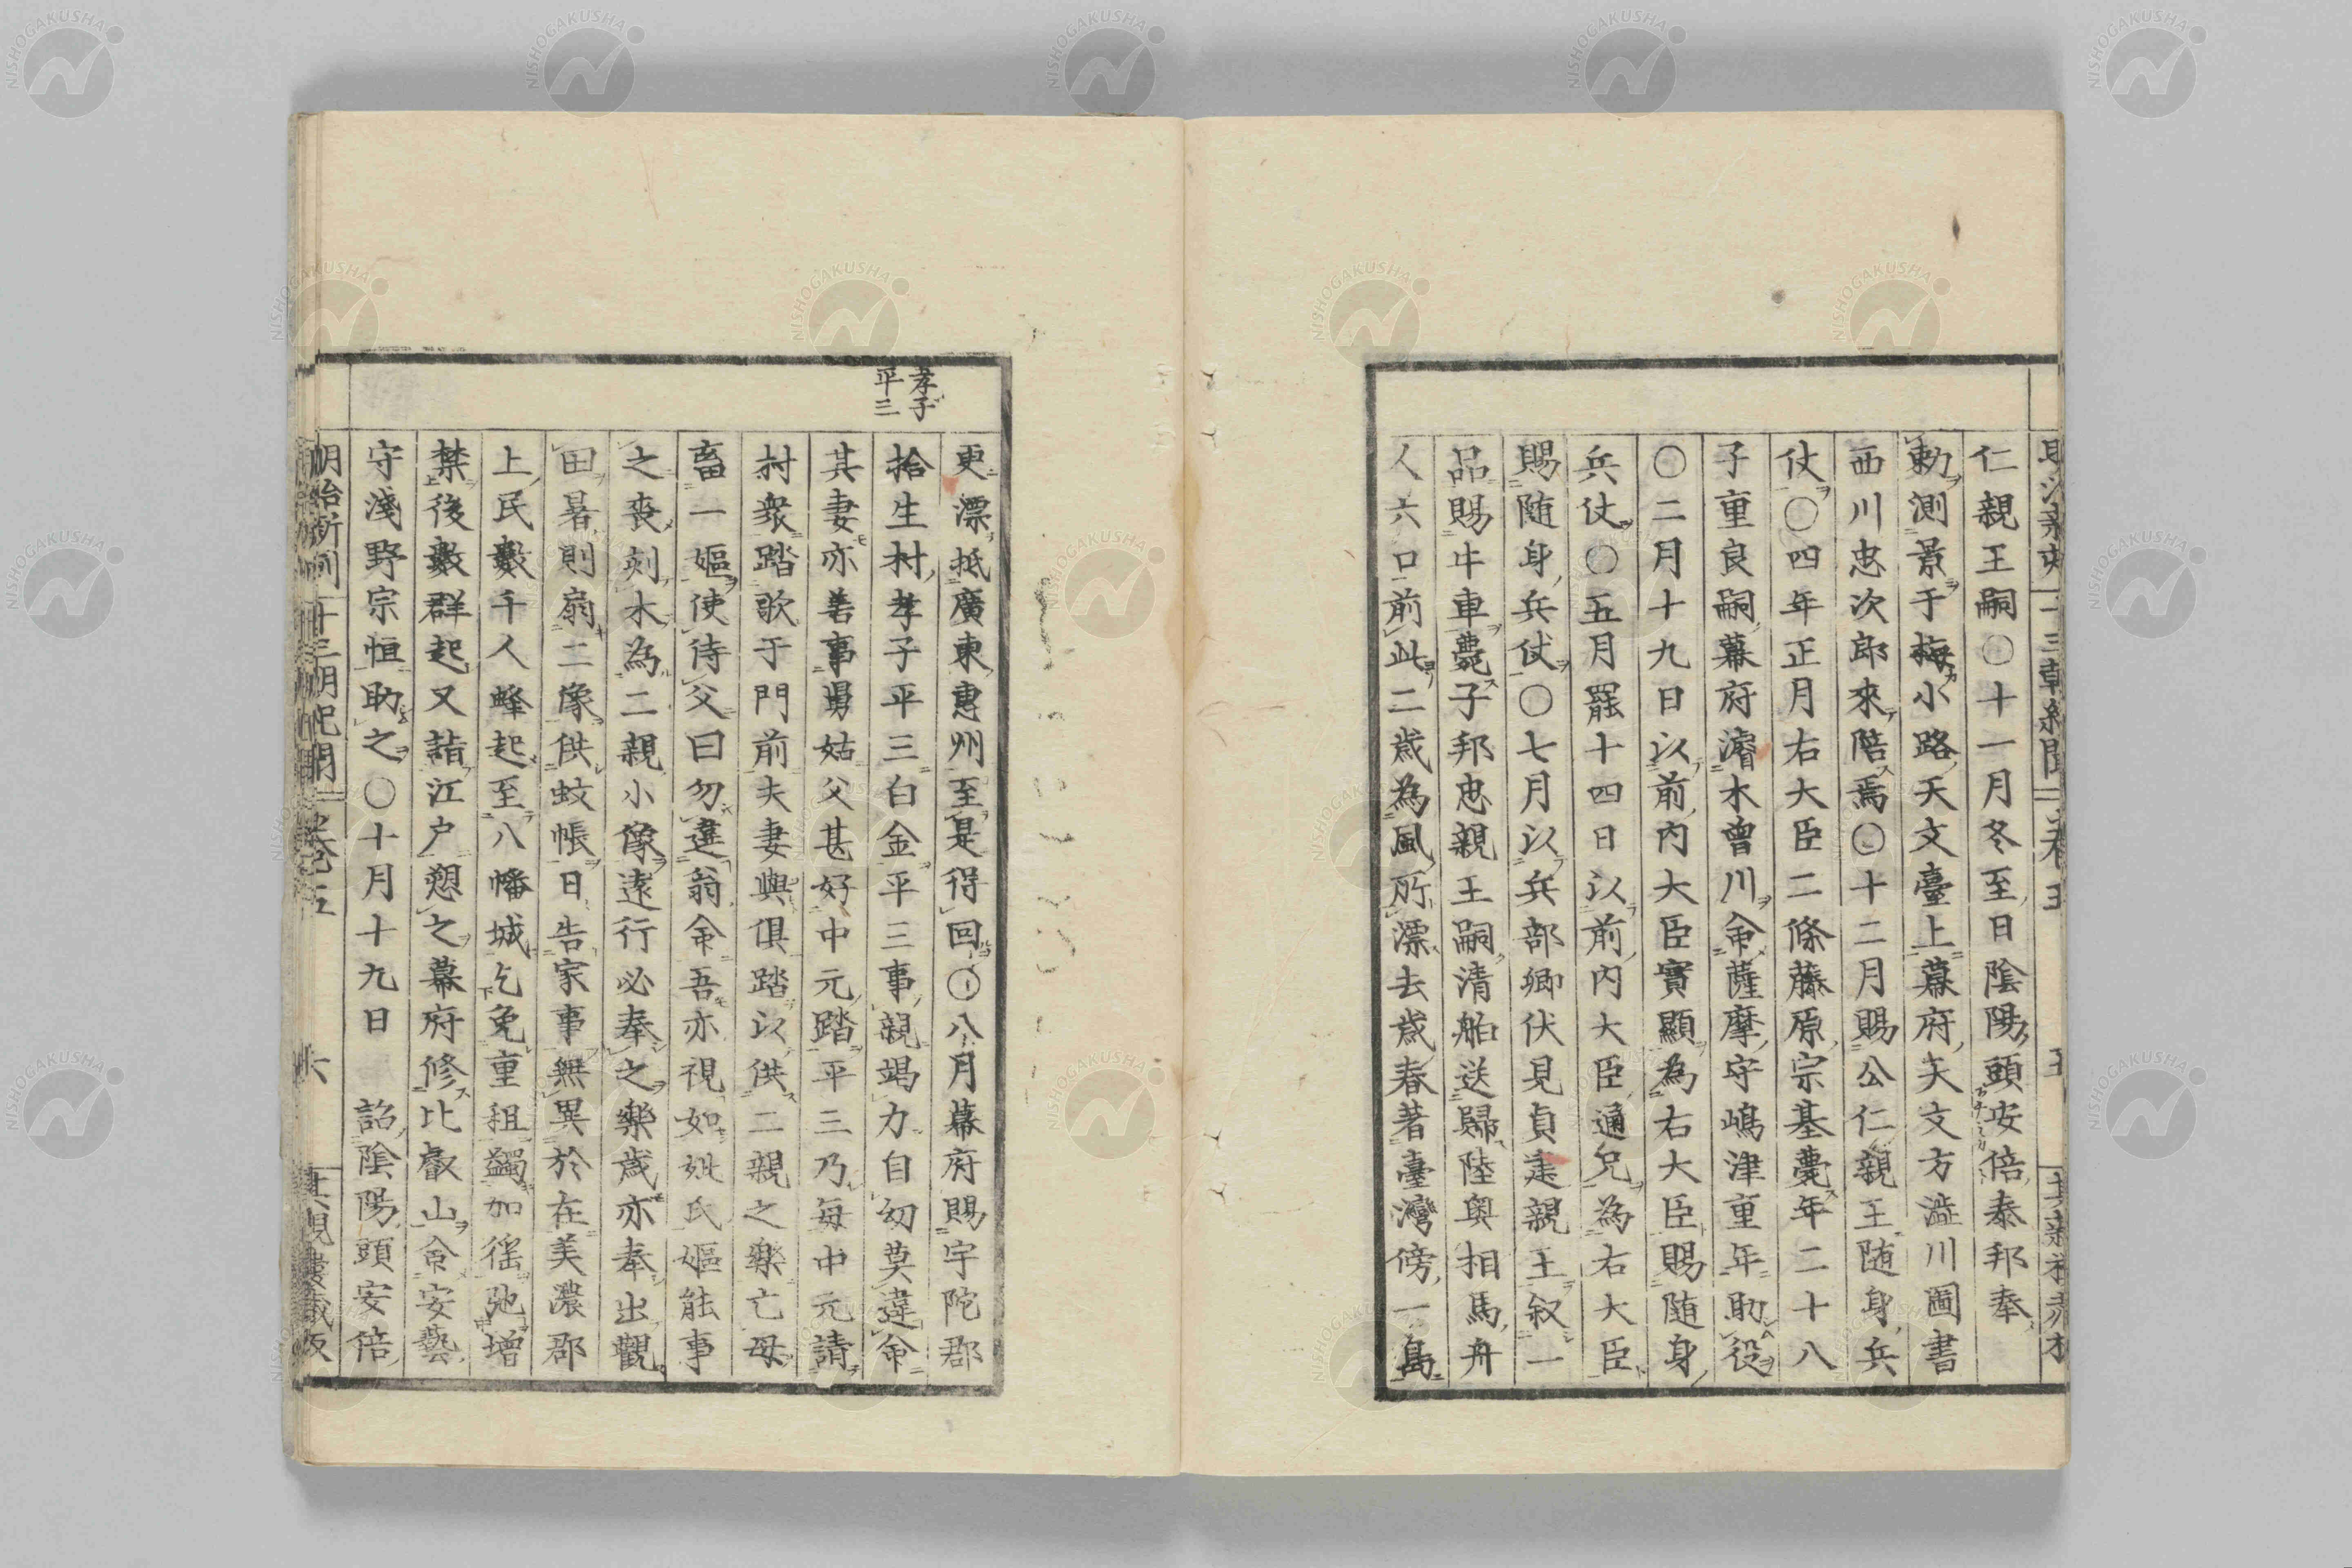 仁親王嗣○十一月冬至日陰陽頭安倍泰邦奉
勅測景于梅小路天文臺上幕府天文方澁川圖書
西川忠次郎來陪焉○十二月賜公仁親王随身兵
仗○四年正月右大臣二條藤原宗基薨年二十八
子重良嗣幕府濬木曾川命薩摩守嶋津重年助役
○二月十九日以前内大臣實顯為右大臣賜随身
兵仗○五月罷十四日以前内大臣通兄為右大臣
賜随身兵仗○七月以兵部卿伏見貞建親王叙一
品賜牛車薨子邦忠親王嗣清舶送歸陸奥相馬舟
人六口前此二歳為風所漂去歳春著臺灣傍一島
孝子
平三
更漂抵廣東惠州至是得回○八月幕府賜宇陀郡
拾生村孝子平三白金平三事親竭力自幼莫違命
其妻亦善事舅姑父甚好中元踏平三乃毎中元請
村衆踏歌于門前夫妻與倶踏以供二親之樂亡母
畜一嫗使侍父曰勿違翁命吾亦視如妣氏嫗能事
之喪刻木為二親小像遠行必奉之樂歳亦奉出觀
田暑則扇二像供蚊帳日告家事無異於在美濃郡
上民數千人蜂起至八幡城乞免重租蠲加徭弛増
禁後數群起又詣江户愬之幕府修比叡山命安藝
守淺野宗恒助之○十月十九日　詔陰陽頭安倍
明治新刻 十三朝紀聞 卷五 六